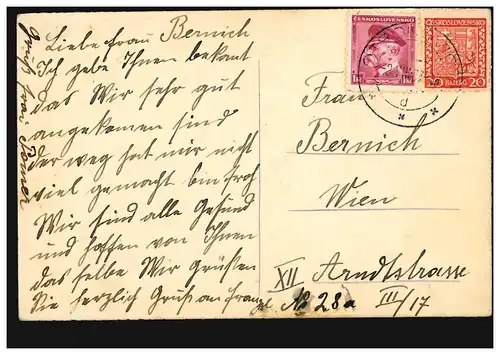 Liebe Frau Bernich
Ich gebe Ihnen bekant
das Wir sehr gut
angekomen sind
der weg hat mir nicht
viel gemacht bin froh
Wir sind alle Gesund
und hoffen von Ihnen
das selbe Wir Grüßen
Sie herzlich Gruß an Franzl
Gruß Frau
ČESKOSLOVENSKO
1Kč 1Kč
ČESKOSLOVENSKO
20 HALÉŘŮ 20
Frau
Bernich
Wien
XII Arndtstrasse
No 28a III/17